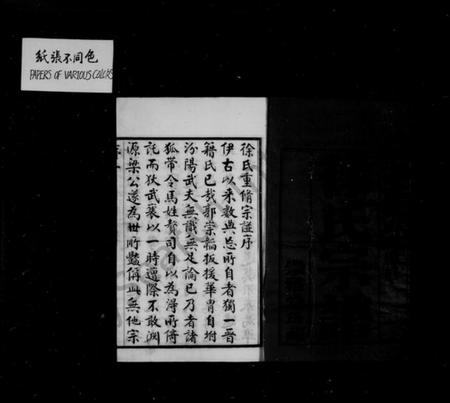 紙張不同色
PAPERS OF VARIOUS COLORS
徐氏重脩宗譜序
伊古以来数典忘所自者獨一晉
籍氏已哉郭崇韜扳援華胄自坿
汾陽武夫無識無足論已乃者諸
狐帶令馬姓賛司自以為得所倚
託而狄武襄以一時遭際不敢溷
源梁公遂為世所豔稱此無他宗